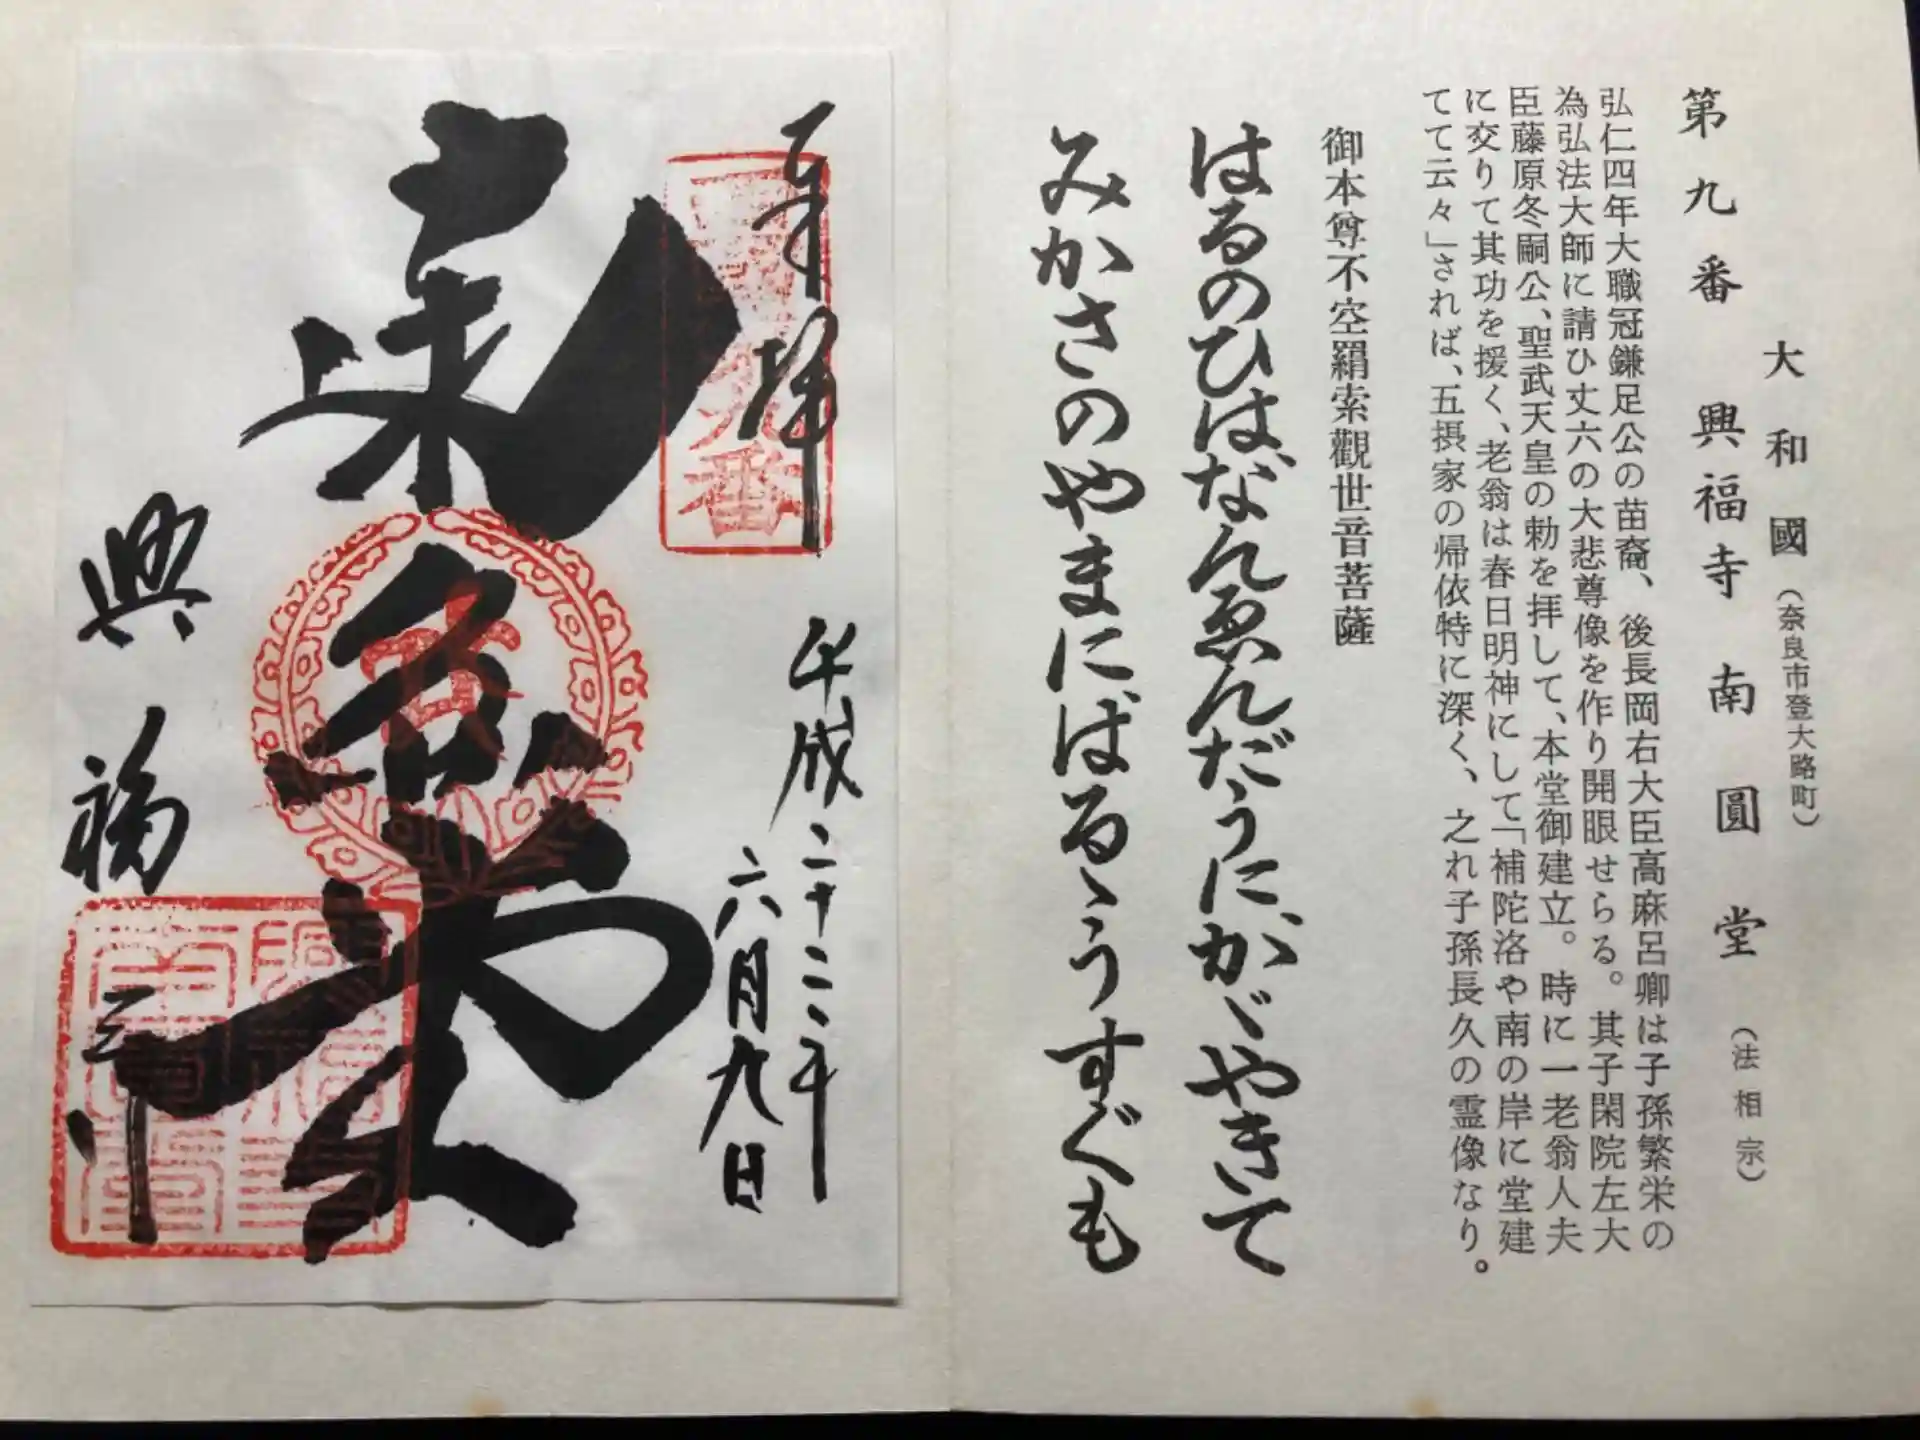 大和國（奈良市登大路町）
第九番 興福寺南圓堂（法相宗）
弘仁四年大職冠鎌足公の苗裔、後長岡右大臣高麻呂卿は子孫繁栄の
為弘法大師に請ひ丈六の大悲尊像を作り開眼せらる。其子閑院左大
臣藤原冬嗣公、聖武天皇の勅を拝して、本堂御建立。時に一老翁人夫
に交りて其功を援く、老翁は春日明神にして「補陀洛や南の岸に堂建
てて云々」されば、五摂家の帰依特に深く、之れ子孫長久の霊像なり。
御本尊不空羂索觀世音菩薩
はるのひは、なんゑんだうに、かゞやきて
みかさのやまに、はるゝうすぐも
奉拝
平成二十二年
六月九日
興福寺
九番